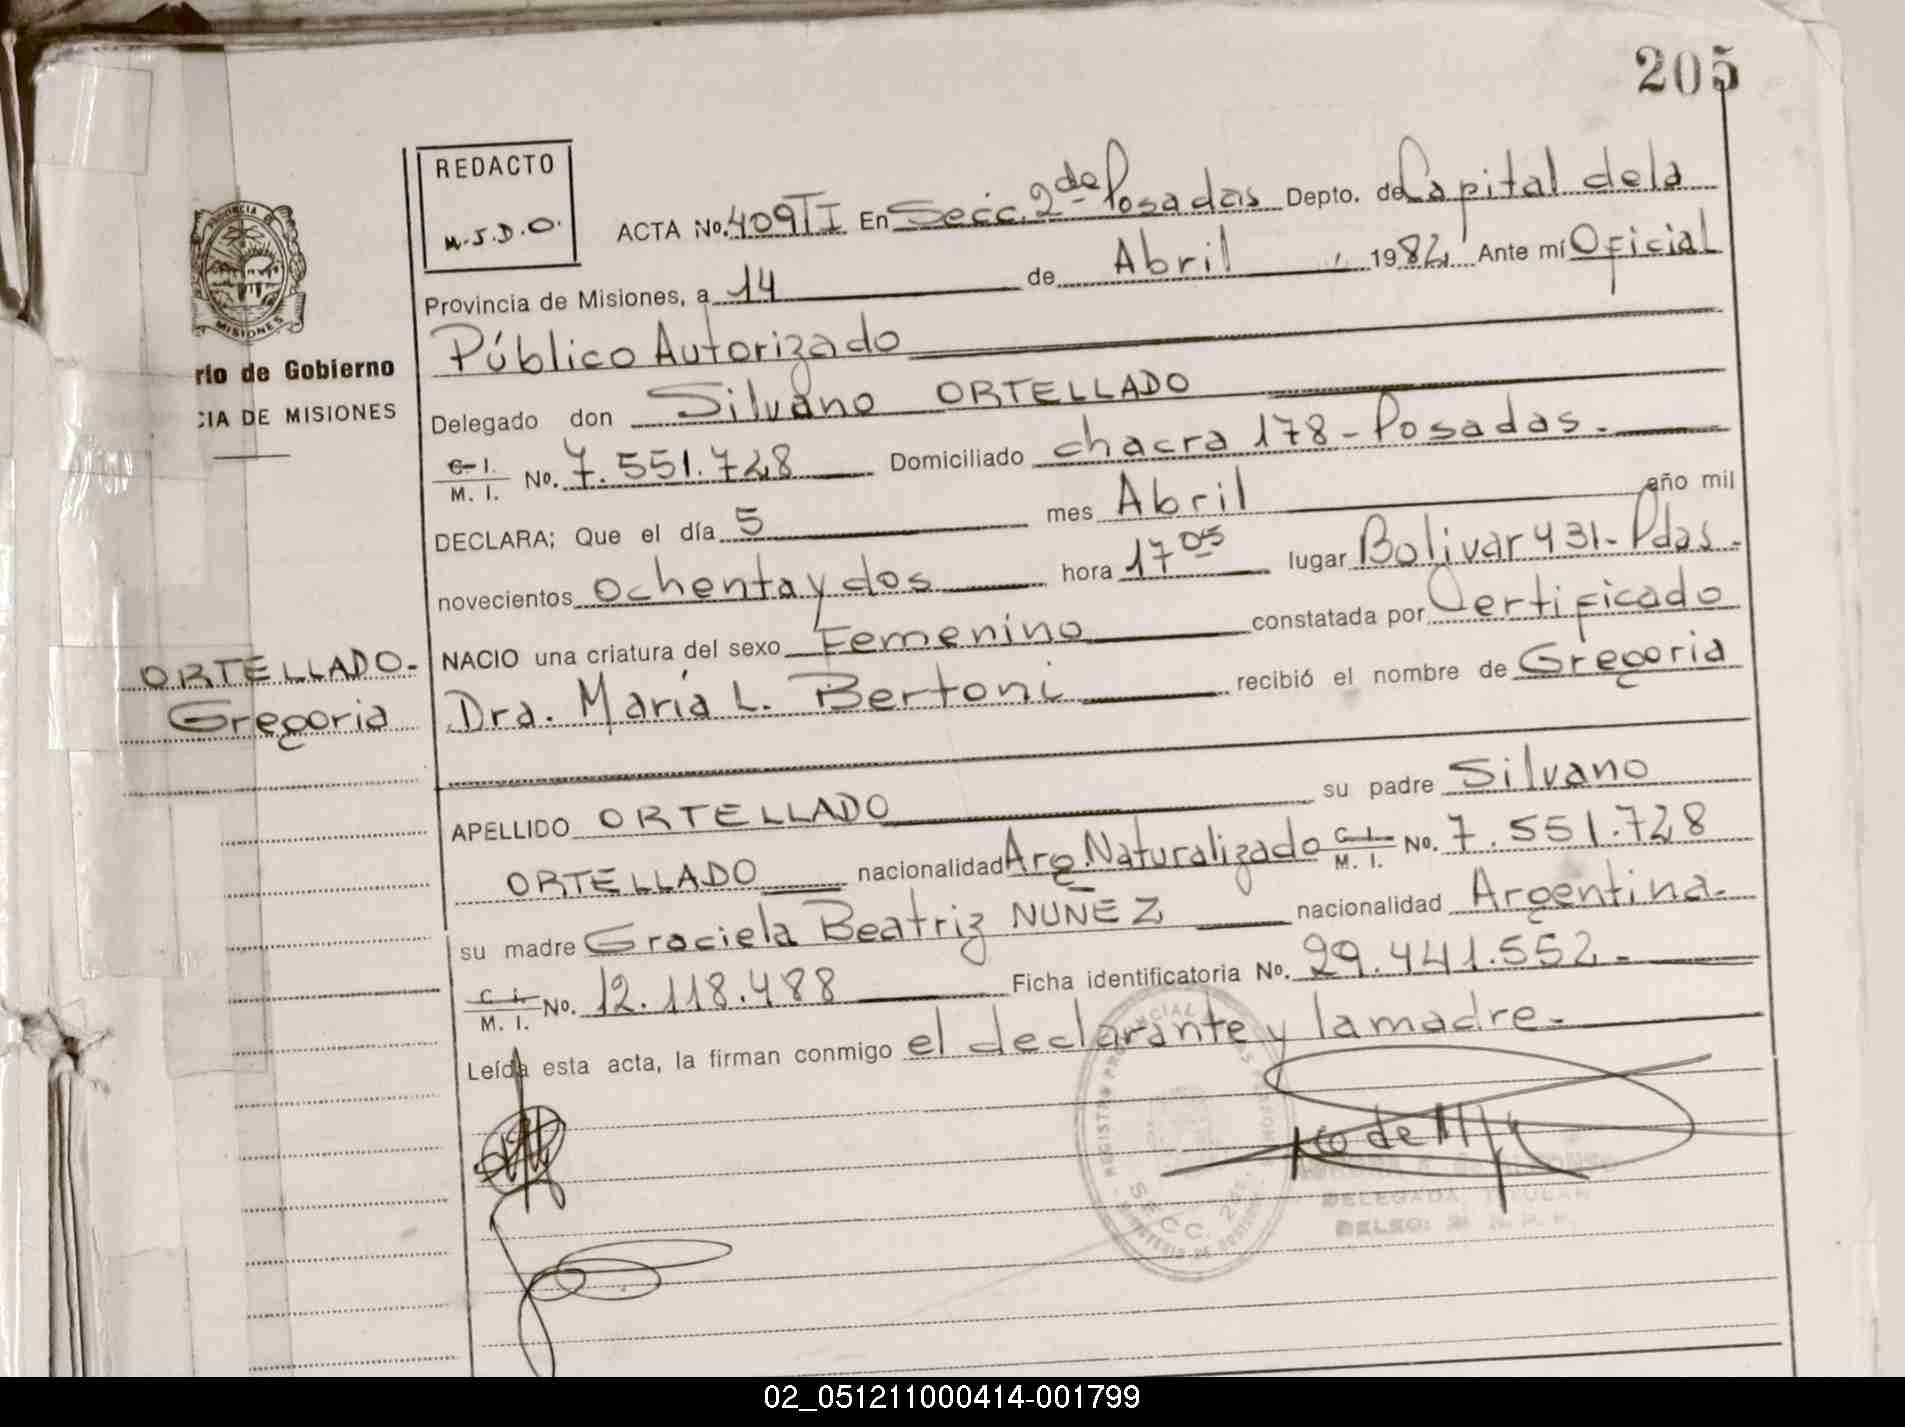 205
REDACTO
M.J.D.O.
ACTA No. 409 TI En Secc. 2da Posadas Depto. de Capital de la
Provincia de Misiones, a 14 de Abril 1982 Ante mí Oficial
Público Autorizado
rio de Gobierno
CIA DE MISIONES
MISIONES
Delegado don Silvano ORTELLADO
C. I. M. I. No. 7.551.728 Domiciliado chacra 178 - Posadas.
DECLARA; Que el día 5 mes Abril año mil
novecientos ochenta y dos hora 17 05 lugar Bolivar 431 - Pdas.
NACIO una criatura del sexo Femenino constatada por Certificado
Dra. María L. Bertoni recibió el nombre de Gregoria
ORTELLADO-
Gregoria
APELLIDO ORTELLADO su padre Silvano
ORTELLADO nacionalidad Arg. Naturalizado C. I. M. I. No. 7.551.728
su madre Graciela Beatriz NUNEZ nacionalidad Argentina.
C. I. M. I. No. 12.118.488 Ficha identificatoria No. 29.441.552.-
Leída esta acta, la firman conmigo el declarante y la madre.-
SECC. 2da.
DELEGADA TITULAR
02_051211000414-001799